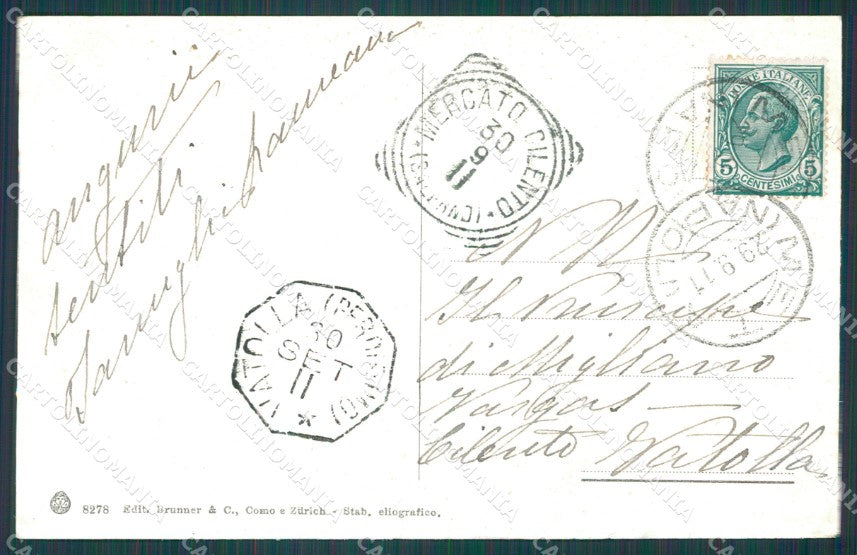 auguri
sentiti
Famiglia
MERCATO CILENTO
30
9
11
POSTE ITALIANE
5 CENTESIMI 5
29 9 11
VATOLLA (PERDIFUMO)
30
SET
11
Il Principe
di Migliano
Vargas —
Cilento Vatolla
8278 Edit. Brunner & C., Como e Zürich - Stab. eliografico.
CARTOLINOMANIA